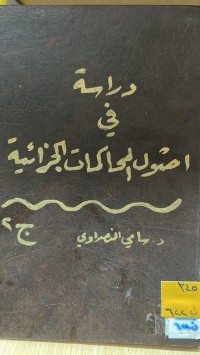 دراسة
في
اصول المحاكمات الجزائية
ج٢
د. سامي النصراوي
٣٤٥